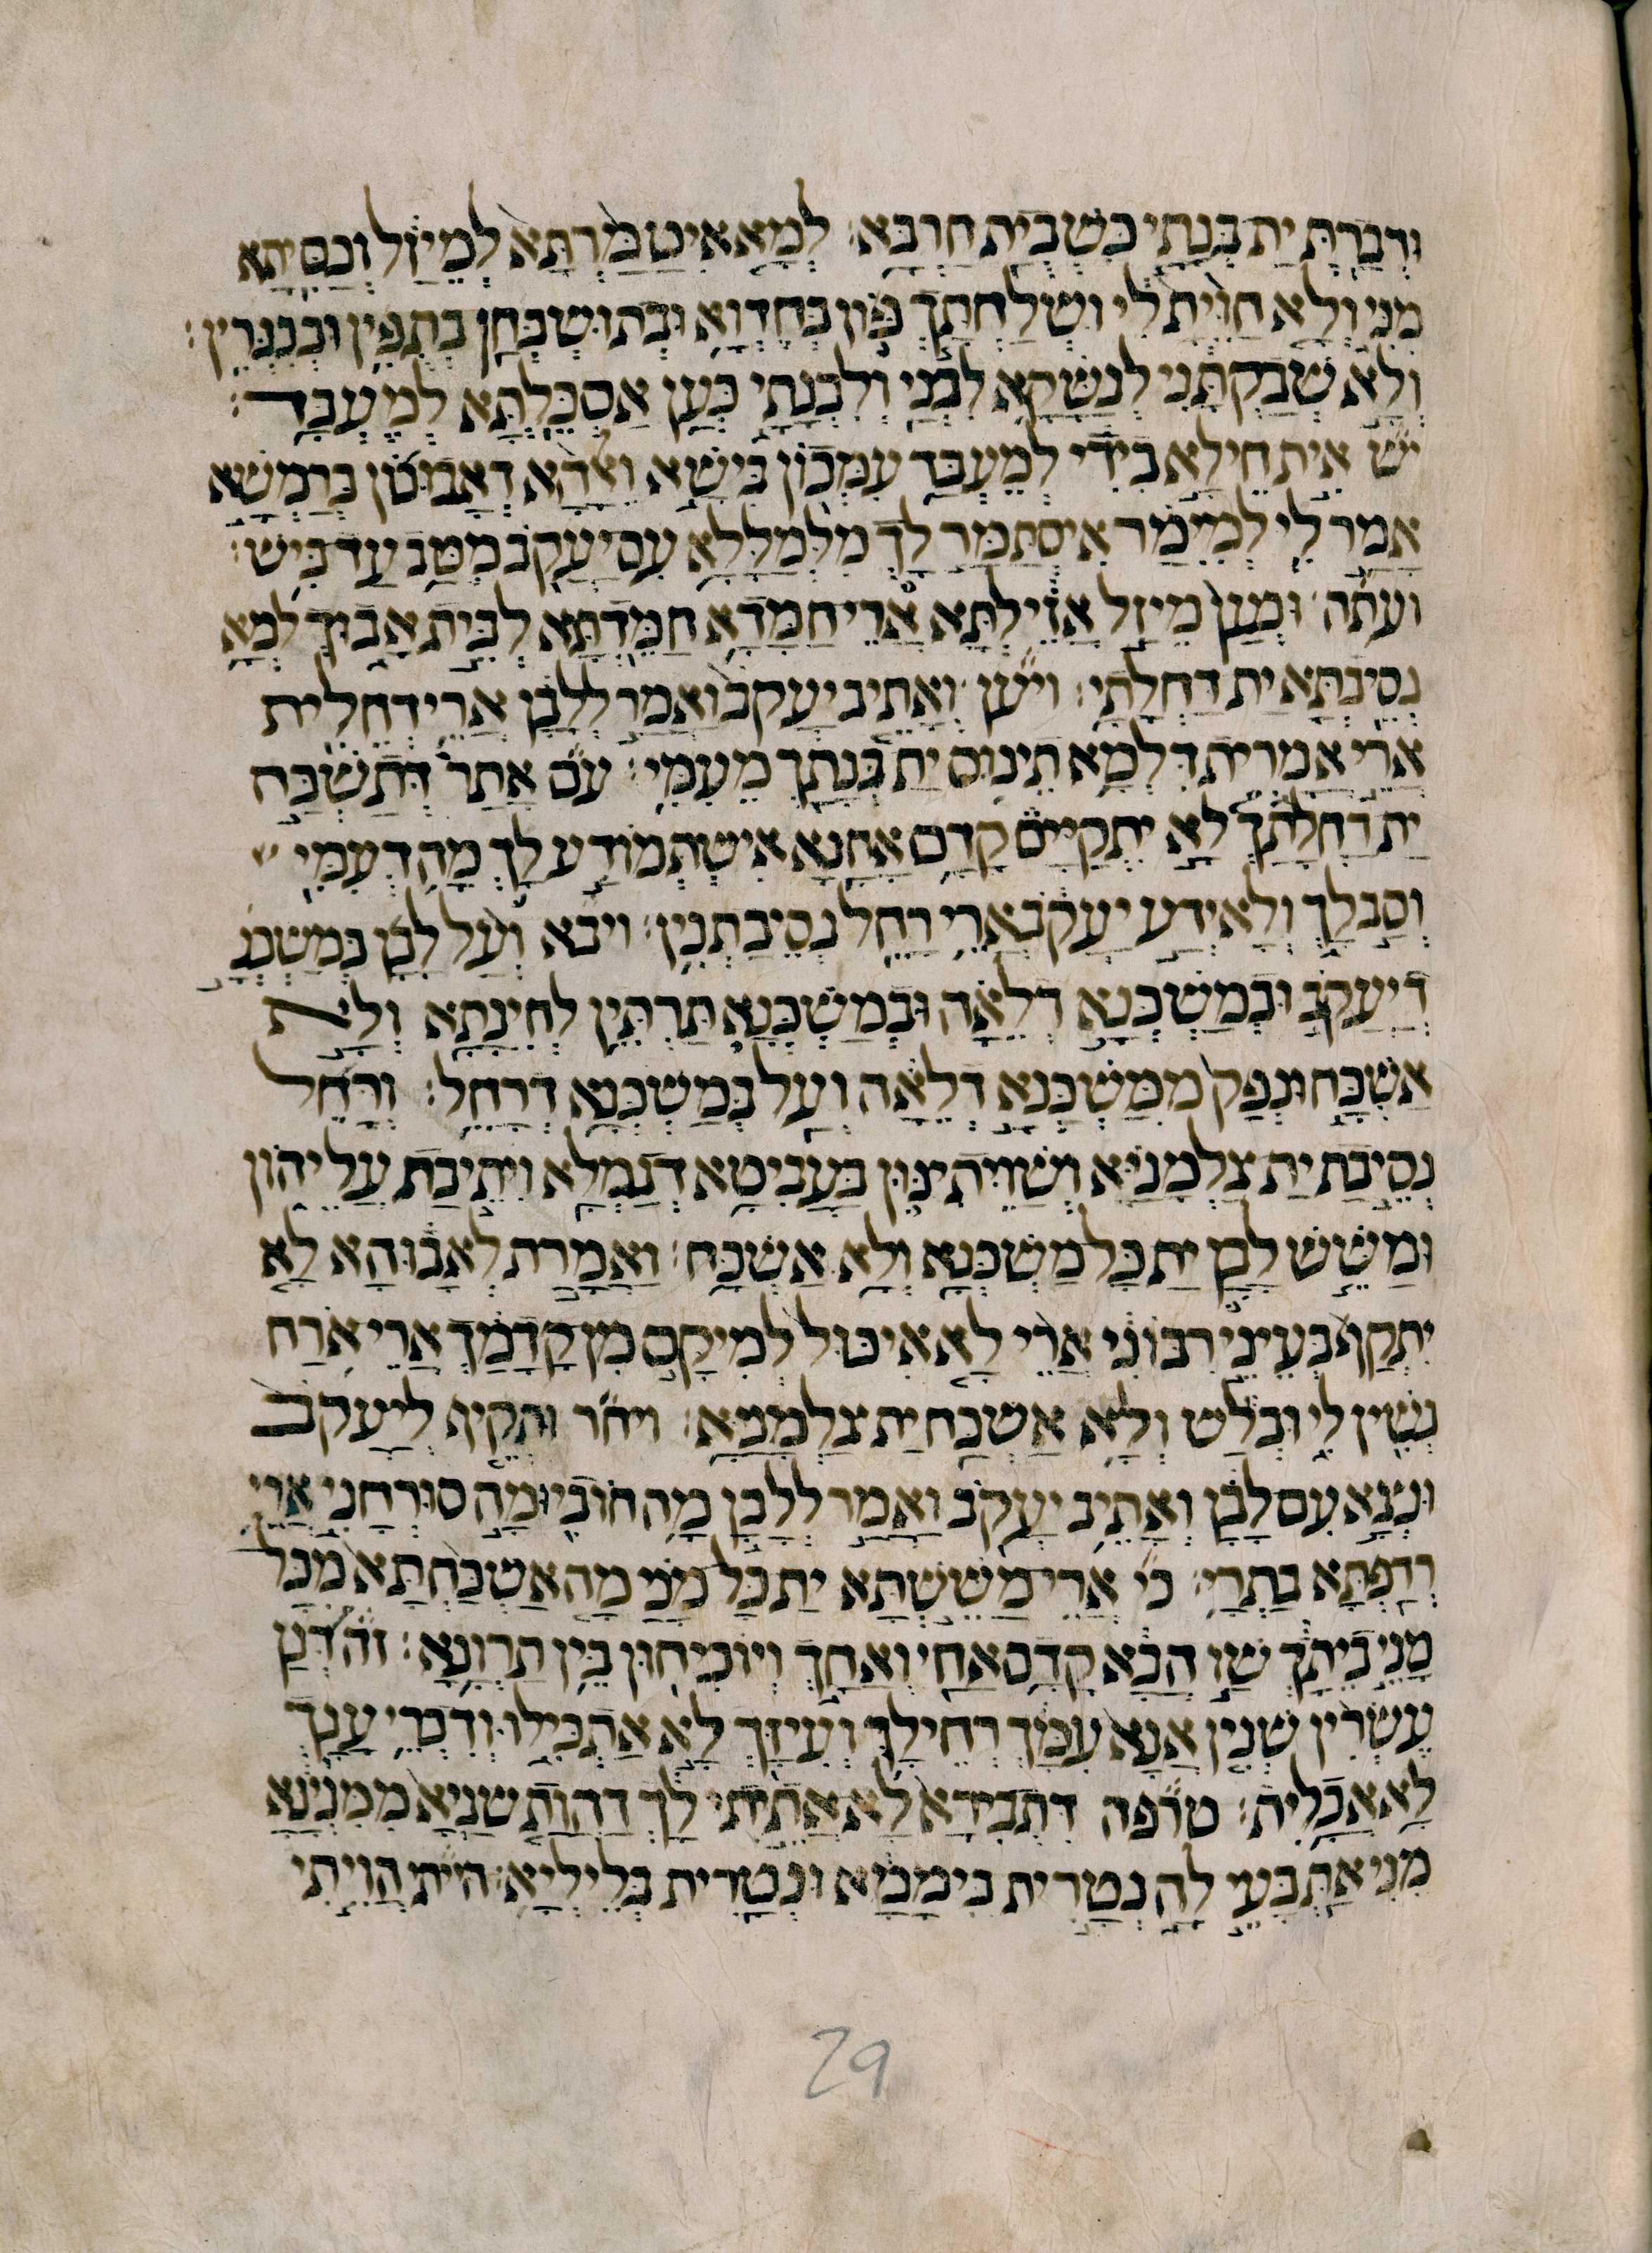 ודברת ית בנתי כשבית חרבא: למא איטמרתא למיזל וכסיתא
מני ולא חויתא לי ושלחתך פון בחדוא ובתושבחן בתפין ובכנרין:
ולא שבקתני לנשקא לבני ולבנתי כען אסכלתא למעבד:
יש אית חילא בידי למעבד עמכון בישא ואלהא דאבוכון ברמשא
אמר לי למימר איסתמר לך מלמללא עם יעקב מטב עד ביש:
ועתה: וכען מיזל אזילתא ארי חמדא חמידתא לבית אבוך למא
נסיבתא ית דחלתי: ויען ואתיב יעקב ואמר ללבן ארי דחלית
ארי אמרית דלמא תינוס ית בנתך מעמי: עם אתר דתשכח
ית דחלתך לא יתקיים קדם אחנא אישתמודע לך מה דעמי
וסב לך ולא ידע יעקב ארי רחל נסיבתנין: ויבא ועל לבן במשכנ
דיעקב ובמשכנא דלאה ובמשכנא תרתין לחינתא ולא
אשכח ונפק ממשכנא דלאה ועל במשכנא דרחל: ורחל
נסיבת ית צלמניא ושויתינון בעביטא דגמלא ויתיבת עליהון
ומשש לבן ית כל משכנא ולא אשכח: ואמרת לאבוה לא
יתקף בעיני רבוני ארי לא איכול למיקם מן קדמך ארי ארח
נשין לי ובלש ולא אשכח ית צלמניא: ויחר ותקיף ליעקב
ונצא עם לבן ואתיב יעקב ואמר ללבן מה חובי ומה סורחני ארי
רדפתא בתרי: כי ארי מששתא ית כל מני מה אשכחתא מכל
מני ביתך שו הכא קדם אחי ואחך ויוכיחון בין תרונא: זה דנן
עשרין שנין אנא עמך רחילך ועיזך לא אתכילו ודכרי ענך
לא אכלית: טרפה דתבירא לא אתיתי לך דהות שניא ממנינא
מני את בעי לה נטרית ביממא ונטרית בליליא: הית הויתי
29